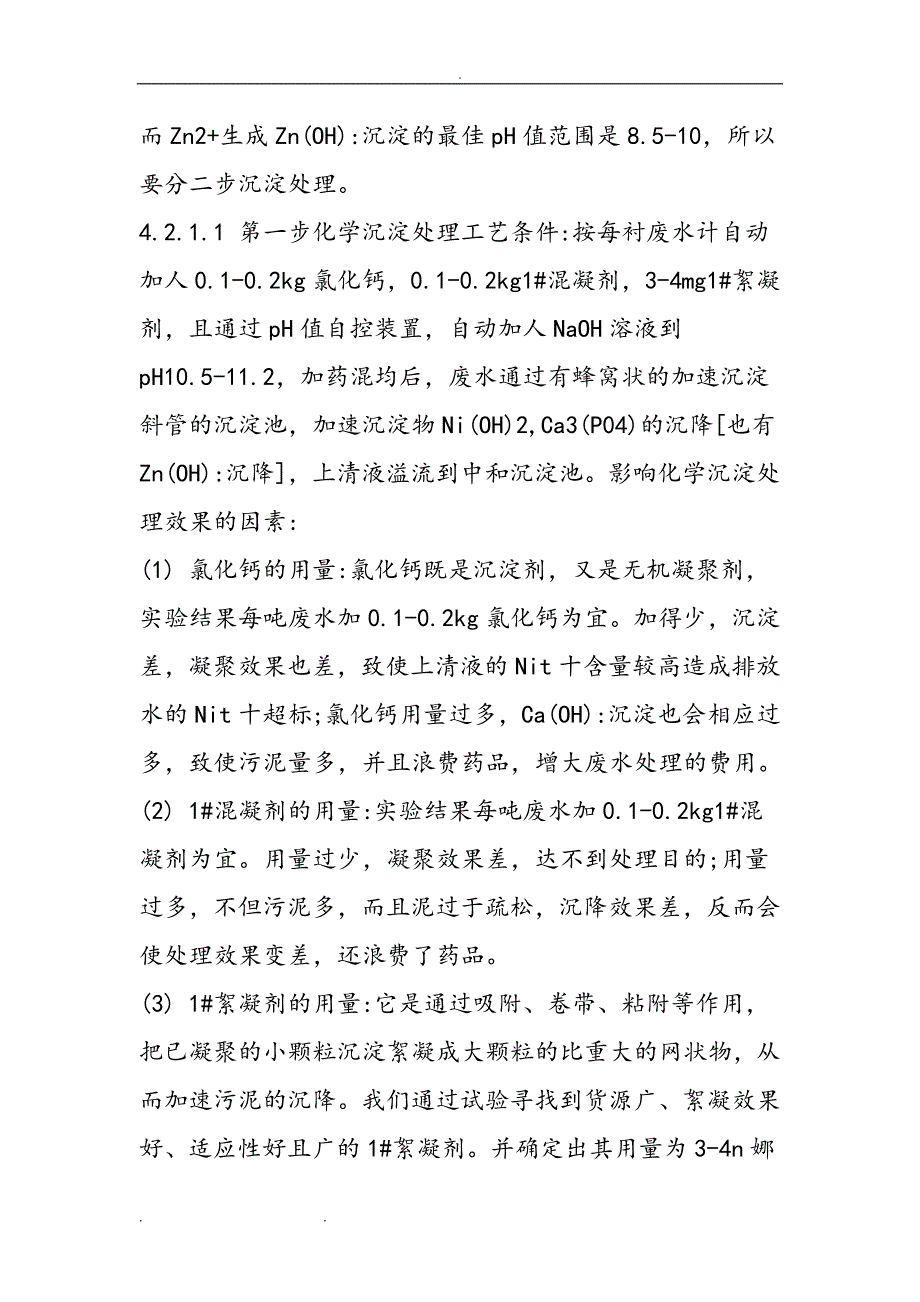 而Zn2+生成Zn(OH):沉淀的最佳pH值范围是8.5-10，所以
要分二步沉淀处理。
4.2.1.1 第一步化学沉淀处理工艺条件:按每衬废水计自动
加人0.1-0.2kg氯化钙，0.1-0.2kg1#混凝剂，3-4mg1#絮凝
剂，且通过pH值自控装置，自动加人NaOH溶液到
pH10.5-11.2，加药混均后，废水通过有蜂窝状的加速沉淀
斜管的沉淀池，加速沉淀物Ni(OH)2,Ca3(PO4)的沉降[也有
Zn(OH):沉降]，上清液溢流到中和沉淀池。影响化学沉淀处
理效果的因素:
(1) 氯化钙的用量:氯化钙既是沉淀剂，又是无机凝聚剂，
实验结果每吨废水加0.1-0.2kg氯化钙为宜。加得少，沉淀
差，凝聚效果也差，致使上清液的Nit十含量较高造成排放
水的Nit十超标;氯化钙用量过多，Ca(OH):沉淀也会相应过
多，致使污泥量多，并且浪费药品，增大废水处理的费用。
(2) 1#混凝剂的用量:实验结果每吨废水加0.1-0.2kg1#混
凝剂为宜。用量过少，凝聚效果差，达不到处理目的;用量
过多，不但污泥多，而且泥过于疏松，沉降效果差，反而会
使处理效果变差，还浪费了药品。
(3) 1#絮凝剂的用量:它是通过吸附、卷带、粘附等作用，
把已凝聚的小颗粒沉淀絮凝成大颗粒的比重大的网状物，从
而加速污泥的沉降。我们通过试验寻找到货源广、絮凝效果
好、适应性好且广的1#絮凝剂。并确定出其用量为3-4n娜